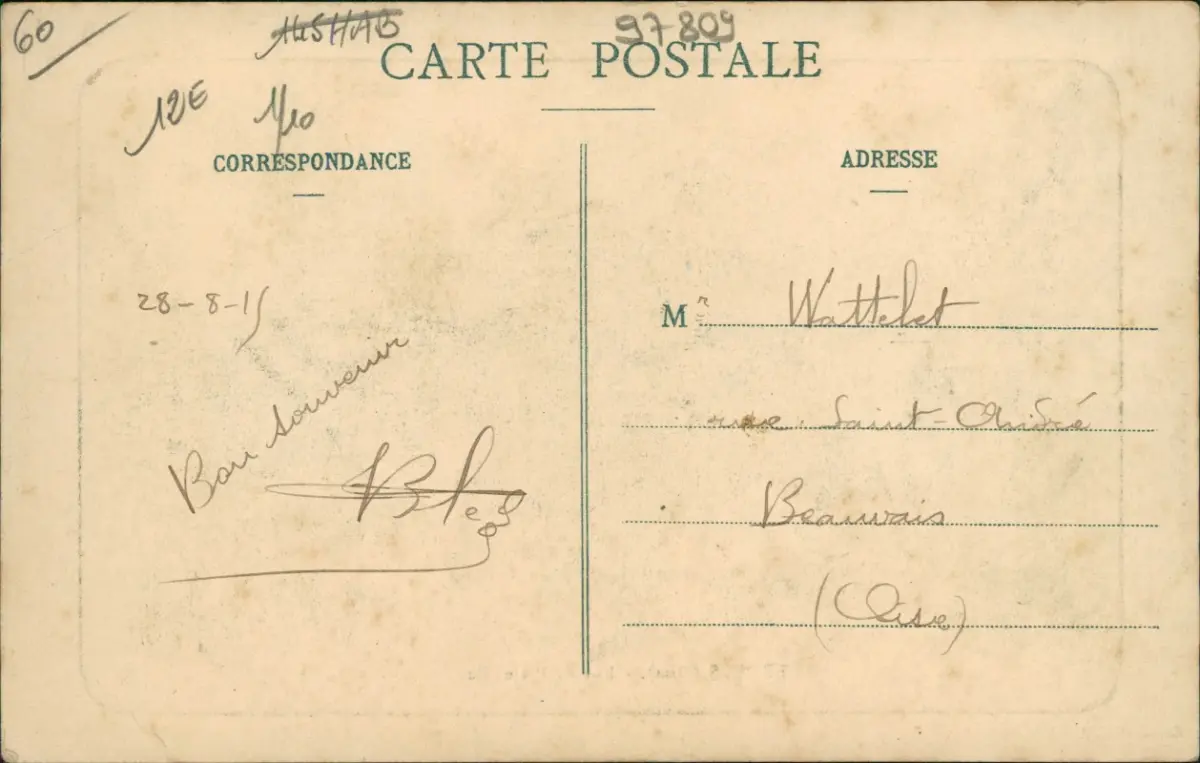 60
97-809
CARTE POSTALE
12E
1/10
CORRESPONDANCE
ADRESSE
28-8-15
Bon souvenir
Mr Wattelet
rue Saint-André
Beauvais
(Oise)